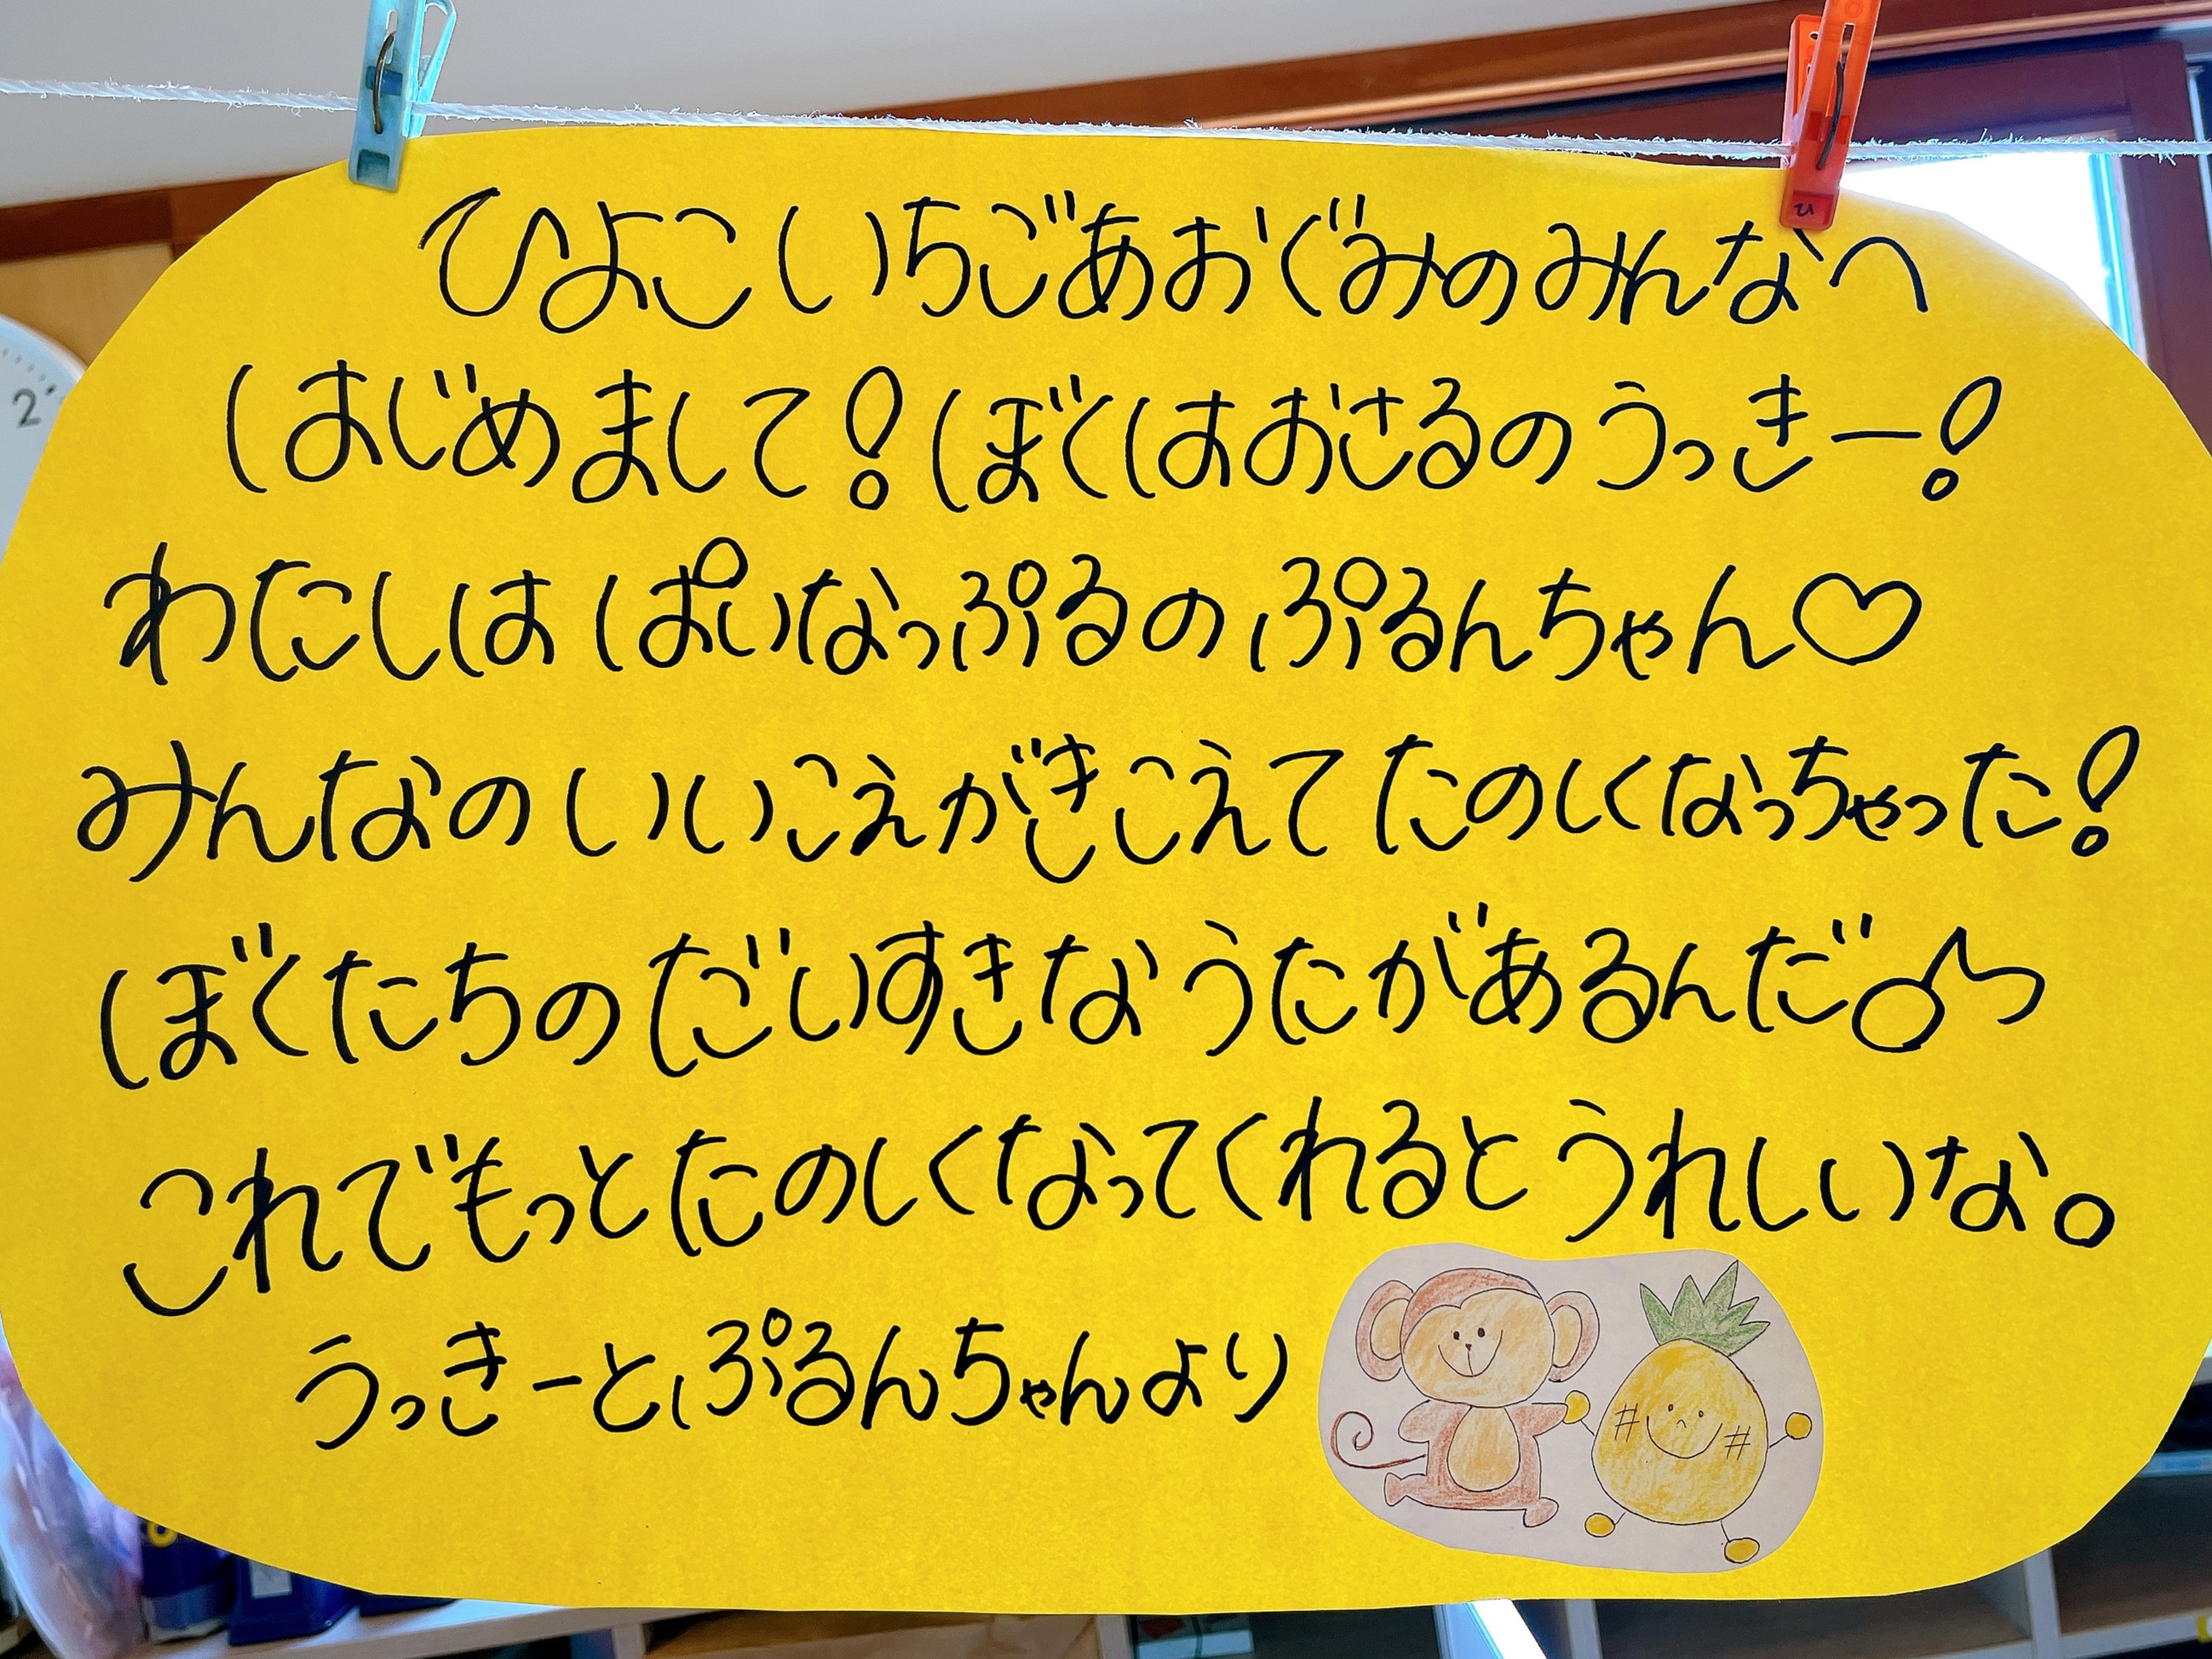 ひよこいちごあおぐみのみんなへ
はじめまして!ぼくはおさるのうっきー!
わたしはぱいなっぷるのぷるんちゃん♡
みんなのいいこえがきこえてたのしくなっちゃった!
ぼくたちのだいすきなうたがあるんだ♪
これでもっとたのしくなってくれるとうれしいな。
うっきーとぷるんちゃんより
2
ひ